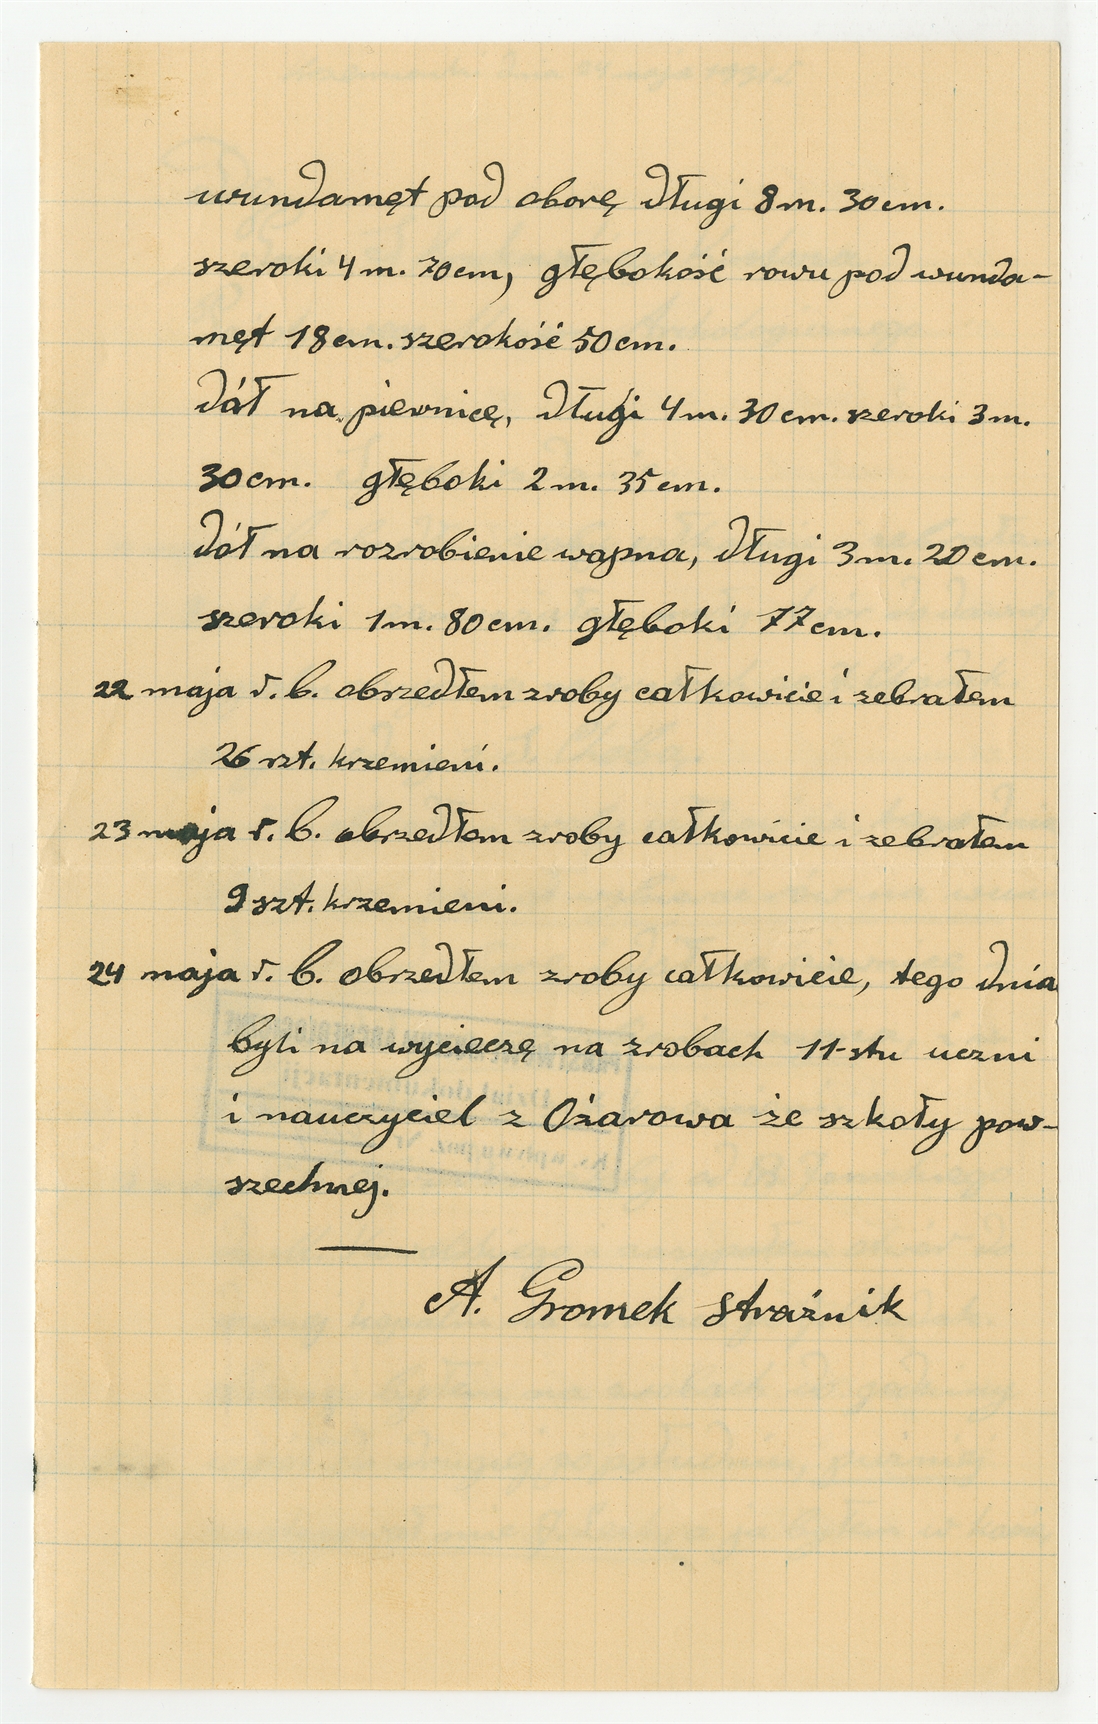 wundamęt pod oborę długi 8 m. 30 cm.
szeroki 4 m. 70 cm, głębokość rowu pod wunda-
męt 18 cm. szerokość 50 cm.
dół na piewnicę, długi 4 m. 30 cm. szeroki 3 m.
30 cm. głęboki 2 m. 35 cm.
dół na rozrobienie wapna, długi 3 m. 20 cm.
szeroki 1 m. 80 cm. głęboki 77 cm.
22 maja r. b. obrzedłem zroby całkowicie i zebrałem
26 szt. krzemieni.
23 maja r. b. obrzedłem zroby całkowicie i zebrałem
9 szt. krzemieni.
24 maja r. b. obrzedłem zroby całkowicie, tego dnia
byli na wycieczę na zrobach 11-stu uczni
i nauczyciel z Ożarowa ze szkoły pow-
szechnej.
A. Gromek strażnik